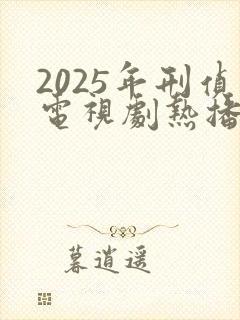 2025年刑偵
電視劇熱播
暮逍遥